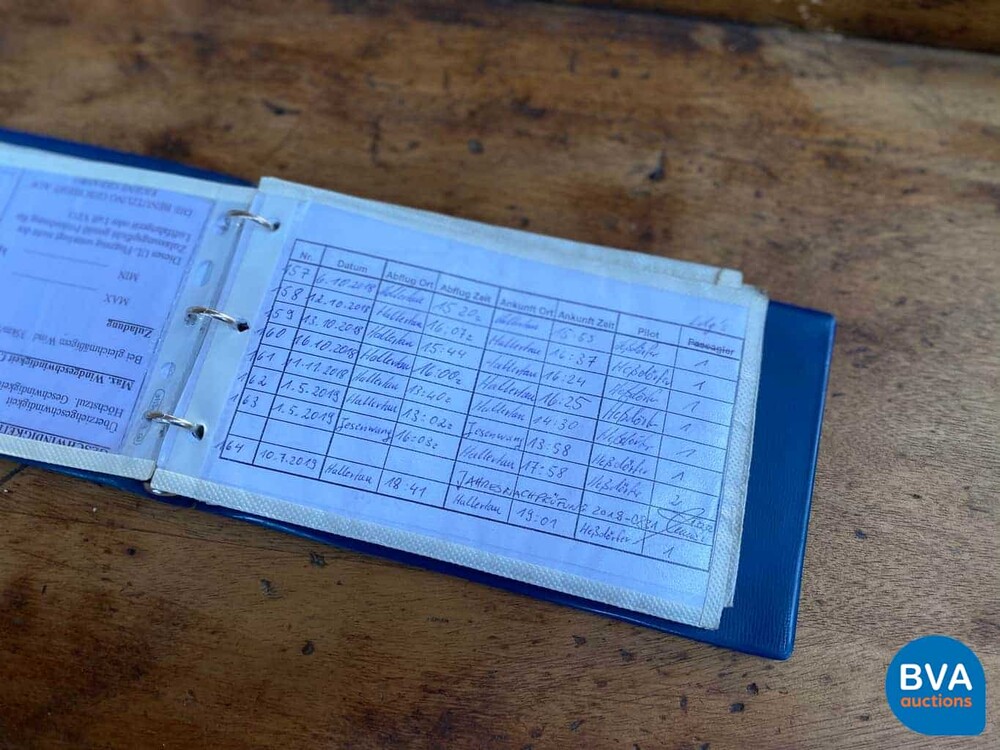 Nr. Datum Abflug Ort Abflug Zeit Ankunft Ort Ankunft Zeit Pilot Passagier
157 6.10.2018 Hallertau 15:20z Hallertau Heßdörfer 1
158 12.10.2018 Hallertau 16:07z Hallertau 16:37 Heßdörfer 1
159 13.10.2018 Hallertau 15:44 Hallertau 16:24 Heßdörfer 1
160 16.10.2018 Hallertau 16:00z Hallertau 16:25 Heßdörfer 1
161 11.11.2018 Hallertau 13:40z Hallertau 14:30 Heßdörfer 1
162 1.5.2019 Hallertau 13:02z Jesenwang 13:58 Heßdörfer
163 1.5.2019 Jesenwang 16:03z Hallertau 17:58 Heßdörfer 2
JAHRESNACHPRÜFUNG
164 10.7.2019 Hallertau 18:41 Hallertau 19:01 Heßdörfer 1
DIE BENUTZUNG GESCHIEHT AUF
EIGENE GEFAHR!
Dieses UL-Flugzeug unterliegt nicht der
MIN
MAX
Zuladung
Bei gleichmäßigem Wind
Max. Windgeschwindigkeit
Höchstzul. Geschwindigkeit
Überziehgeschwindigkeit
GESCHWINDIGKEIT
BVA
auctions